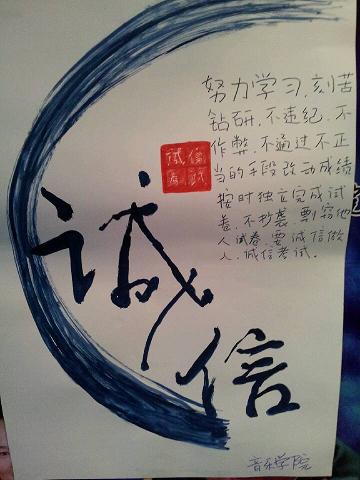 努力学习,刻苦
钻研,不违纪,不
作弊,不通过不正
当的手段改动成绩
按时独立完成试
卷,不抄袭 剽窃他
人试卷,要诚信做
人,诚信考试.
诚信
音乐学院